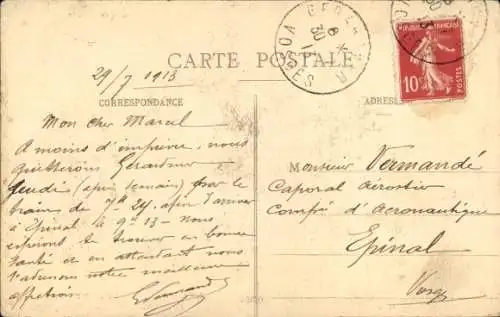 GERARDMER
VOSGES
6
30
CARTE POSTALE
29/7 1913
CORRESPONDANCE
ADRESSE
Mon cher Marcel
A moins d'imprévu, nous
quitterons Gérardmer
jeudi (après demain) par le
train de 7h 24, afin d'arriver
à Epinal à 9h 13 - Nous
espérons te trouver en bonne
santé et en attendant nous
t'adressons notre meilleure
affection.
Monsieur Vermandé
Caporal Aérostier
Comp. d'Aéronautique
Epinal
Vosges
REPUBLIQUE FRANÇAISE
10
POSTES